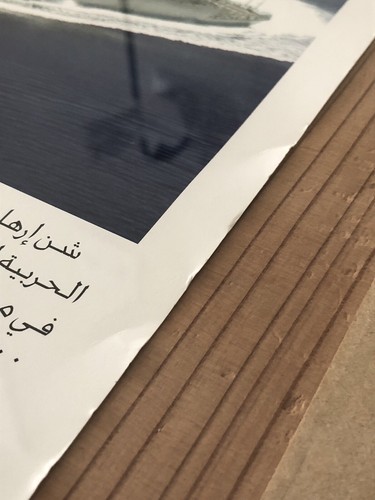 شن إرها
الحربية ا
في م
..